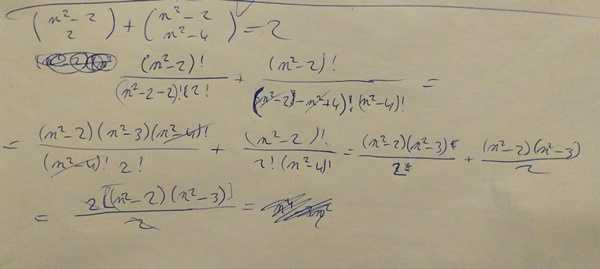 (n²-2 2) + (n²-2 n²-4) = 2
(n²-2)!/(n²-2-2)!2! + (n²-2)!/(n²-2-n²+4)!(n²-4)! =
= (n²-2)(n²-3)(n²-4)!/(n²-4)!2! + (n²-2)!/2!(n²-4)! = (n²-2)(n²-3)/2 + (n²-2)(n²-3)/2
= 2[(n²-2)(n²-3)]/2 =